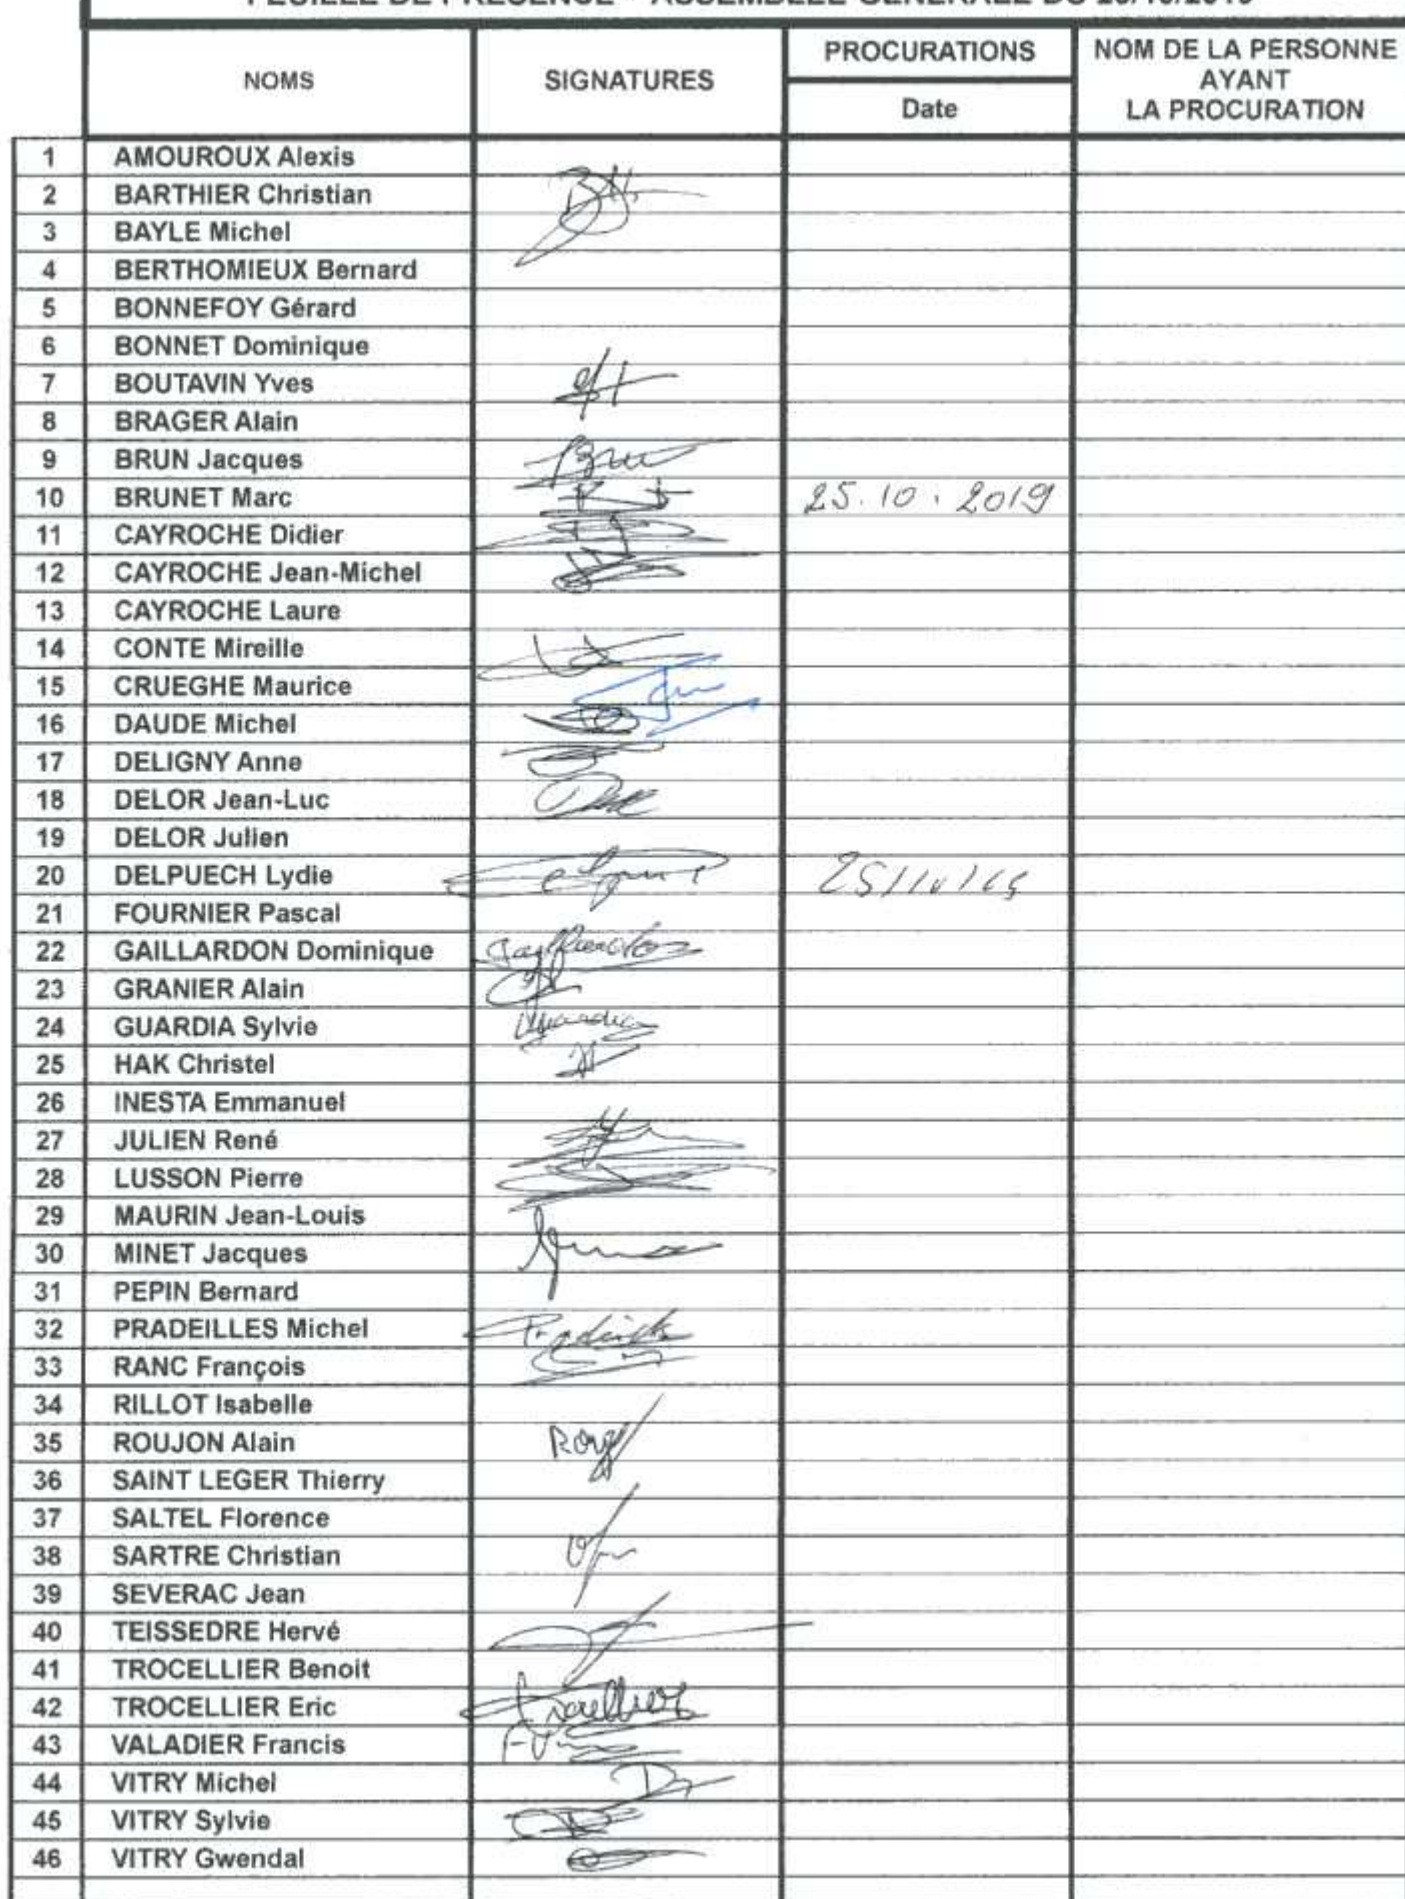 FEUILLE DE PRESENCE - ASSEMBLEE GENERALE DU
NOMS
SIGNATURES
PROCURATIONS
Date
NOM DE LA PERSONNE
AYANT
LA PROCURATION
1 AMOUROUX Alexis
2 BARTHIER Christian
3 BAYLE Michel
4 BERTHOMIEUX Bernard
5 BONNEFOY Gérard
6 BONNET Dominique
7 BOUTAVIN Yves
8 BRAGER Alain
9 BRUN Jacques
10 BRUNET Marc 25.10.2019
11 CAYROCHE Didier
12 CAYROCHE Jean-Michel
13 CAYROCHE Laure
14 CONTE Mireille
15 CRUEGHE Maurice
16 DAUDE Michel
17 DELIGNY Anne
18 DELOR Jean-Luc
19 DELOR Julien
20 DELPUECH Lydie
21 FOURNIER Pascal
22 GAILLARDON Dominique
23 GRANIER Alain
24 GUARDIA Sylvie
25 HAK Christel
26 INESTA Emmanuel
27 JULIEN René
28 LUSSON Pierre
29 MAURIN Jean-Louis
30 MINET Jacques
31 PEPIN Bernard
32 PRADEILLES Michel
33 RANC François
34 RILLOT Isabelle
35 ROUJON Alain
36 SAINT LEGER Thierry
37 SALTEL Florence
38 SARTRE Christian
39 SEVERAC Jean
40 TEISSEDRE Hervé
41 TROCELLIER Benoit
42 TROCELLIER Eric
43 VALADIER Francis
44 VITRY Michel
45 VITRY Sylvie
46 VITRY Gwendal